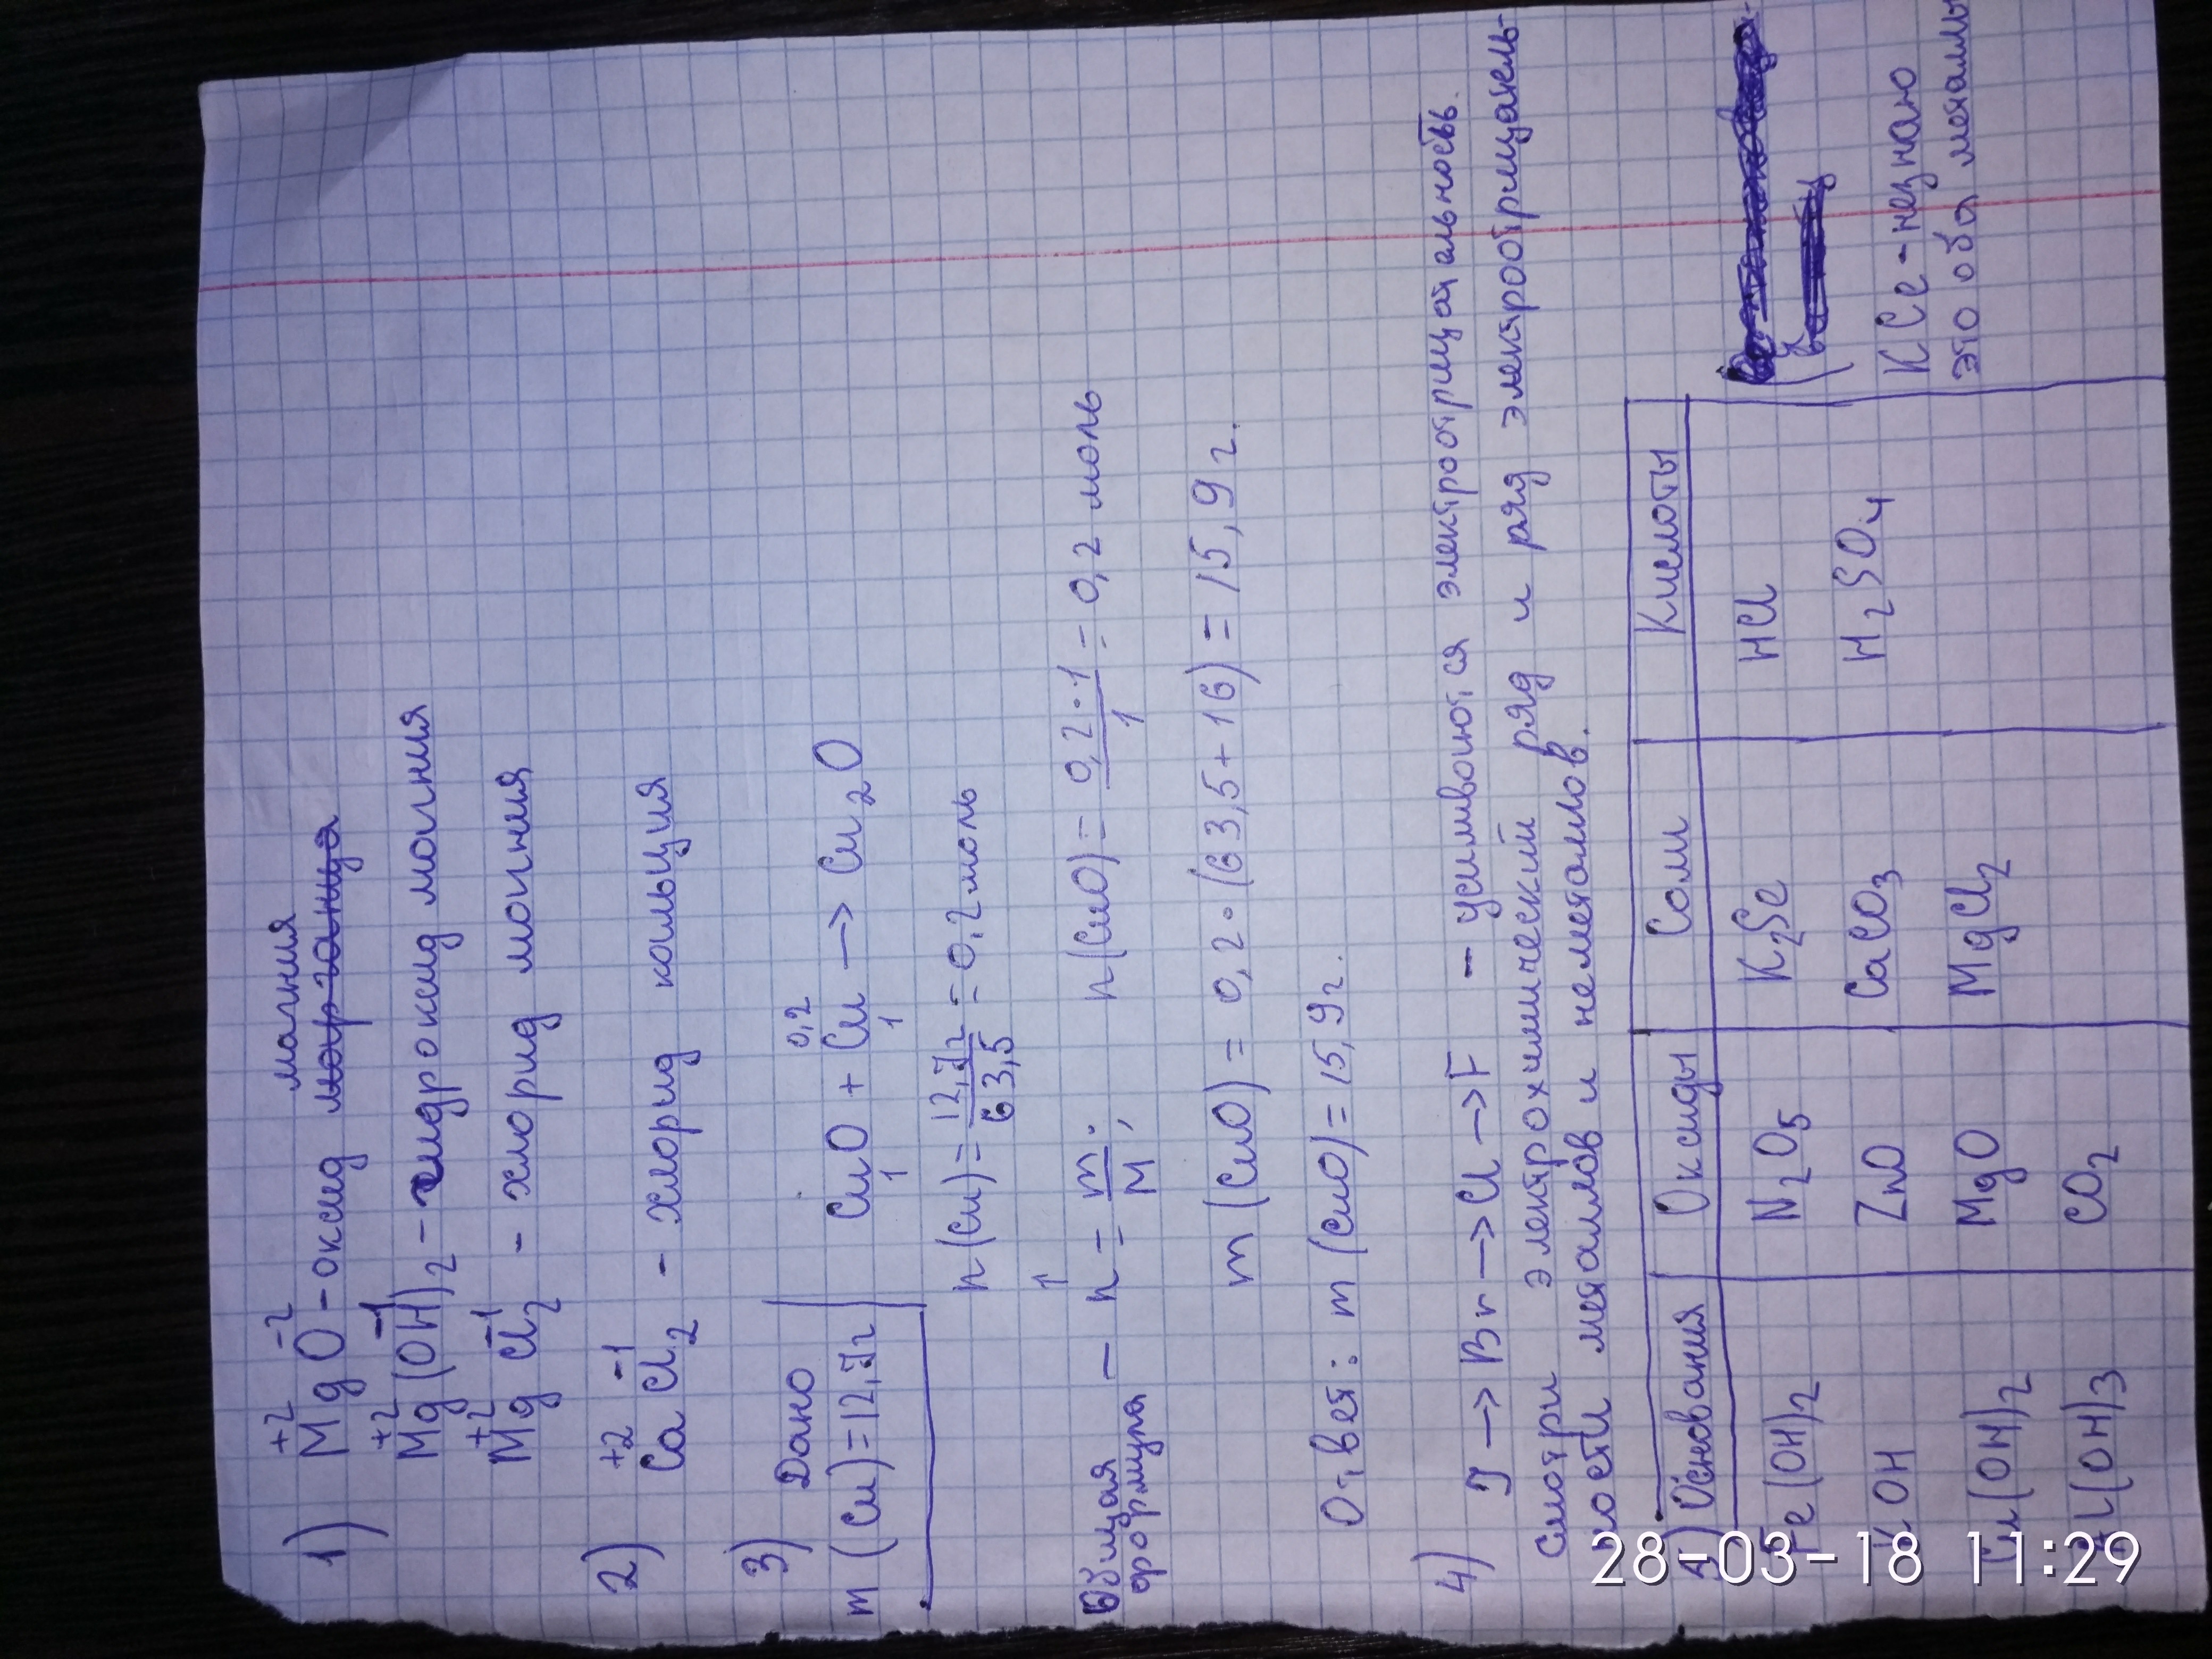 1) Mg⁺²O⁻² - оксид марганца магния
Mg⁺²(OH)₂⁻¹ - гидроксид магния
Mg⁺²Cl₂⁻¹ - хлорид магния
2) Ca⁺²Cl₂⁻¹ - хлорид кальция
3) Дано
m (Cu) = 12,7г
0,2
CuO + Cu → Cu₂O
1 1
n(Cu) = 12,7г/63,5 = 0,2 моль
Общая формула — n = m/M; n(CuO) = 0,2·1/1 = 0,2 моль
m (CuO) = 0,2·(63,5+16) = 15,9 г.
Ответ: m (CuO) = 15,9г.
4) J → Br → Cl → F - усиливаются электроотрицательность.
Смотри электрохимический ряд и ряд электроотрицатель-
ности металлов и неметаллов.
5) Основания Оксиды Соли Кислоты
Fe(OH)₂ N₂O₅ K₂Se HCl
KOH ZnO CaCO₃ H₂SO₄ KCe - незнаю
Cu(OH)₂ MgO MgCl₂ это оба металлы
Al(OH)₃ CO₂
28-03-18 11:29